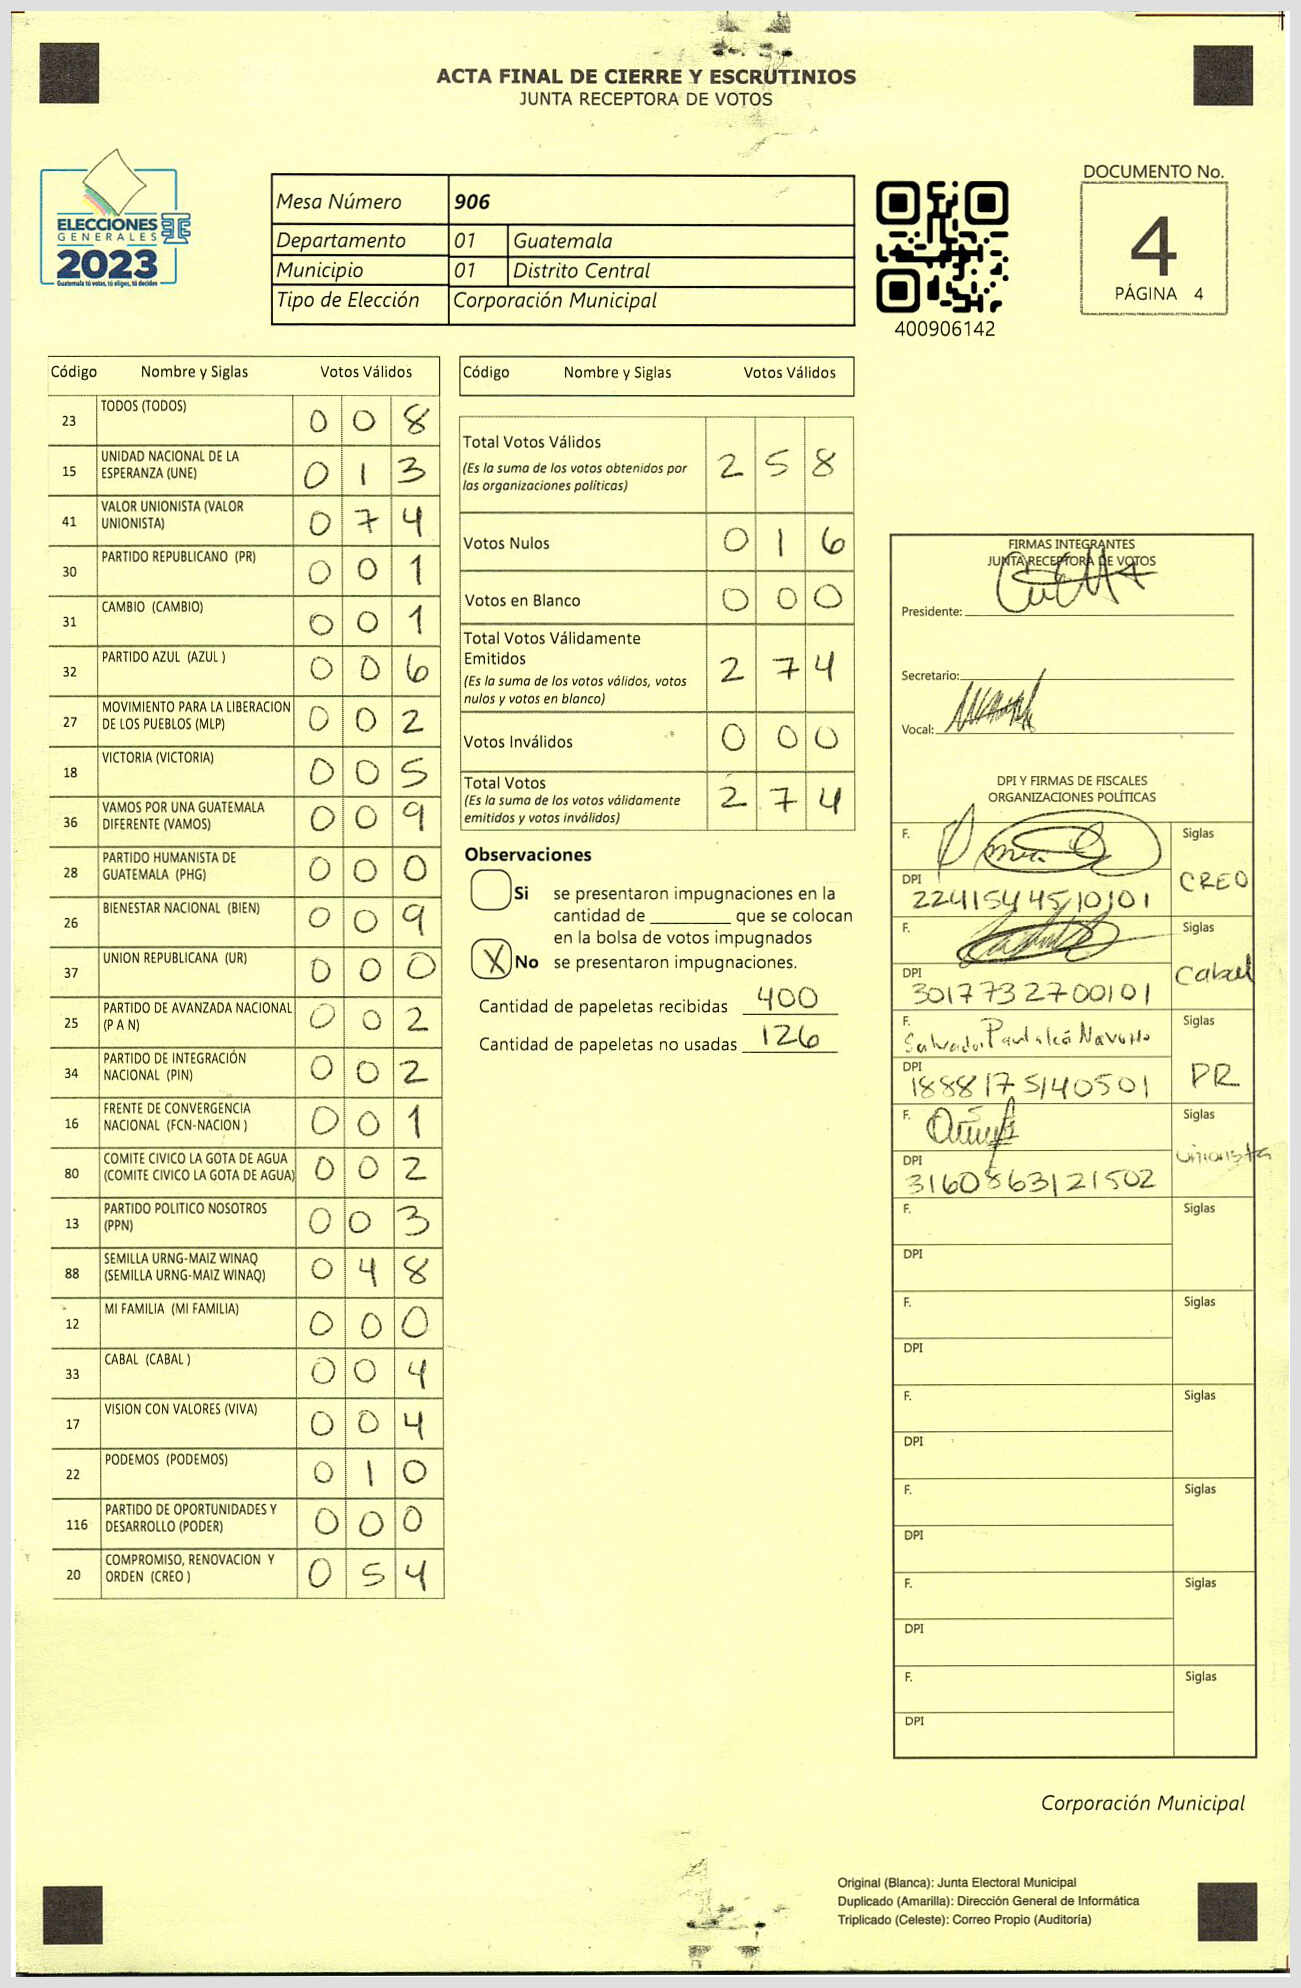 ACTA FINAL DE CIERRE Y ESCRUTINIOS
JUNTA RECEPTORA DE VOTOS
ELECCIONES
GENERALES
2023
Guatemala tú votas, tú eliges, tú decides
Mesa Número 906
Departamento 01 Guatemala
Municipio 01 Distrito Central
Tipo de Elección Corporación Municipal
400906142
DOCUMENTO No.
4
PÁGINA 4
Código Nombre y Siglas Votos Válidos
23 TODOS (TODOS) 0 0 8
15 UNIDAD NACIONAL DE LA
ESPERANZA (UNE) 0 1 3
41 VALOR UNIONISTA (VALOR
UNIONISTA) 0 7 4
30 PARTIDO REPUBLICANO (PR) 0 0 1
31 CAMBIO (CAMBIO) 0 0 1
32 PARTIDO AZUL (AZUL ) 0 0 6
27 MOVIMIENTO PARA LA LIBERACION
DE LOS PUEBLOS (MLP) 0 0 2
18 VICTORIA (VICTORIA) 0 0 5
36 VAMOS POR UNA GUATEMALA
DIFERENTE (VAMOS) 0 0 9
28 PARTIDO HUMANISTA DE
GUATEMALA (PHG) 0 0 0
26 BIENESTAR NACIONAL (BIEN) 0 0 9
37 UNION REPUBLICANA (UR) 0 0 0
25 PARTIDO DE AVANZADA NACIONAL
(P A N) 0 0 2
34 PARTIDO DE INTEGRACIÓN
NACIONAL (PIN) 0 0 2
16 FRENTE DE CONVERGENCIA
NACIONAL (FCN-NACION ) 0 0 1
80 COMITE CIVICO LA GOTA DE AGUA
(COMITE CIVICO LA GOTA DE AGUA) 0 0 2
13 PARTIDO POLITICO NOSOTROS
(PPN) 0 0 3
88 SEMILLA URNG-MAIZ WINAQ
(SEMILLA URNG-MAIZ WINAQ) 0 4 8
12 MI FAMILIA (MI FAMILIA) 0 0 0
33 CABAL (CABAL ) 0 0 4
17 VISION CON VALORES (VIVA) 0 0 4
22 PODEMOS (PODEMOS) 0 1 0
116 PARTIDO DE OPORTUNIDADES Y
DESARROLLO (PODER) 0 0 0
20 COMPROMISO, RENOVACION Y
ORDEN (CREO ) 0 5 4
Código Nombre y Siglas Votos Válidos
Total Votos Válidos 2 5 8
(Es la suma de los votos obtenidos por
las organizaciones políticas)
Votos Nulos 0 1 6
Votos en Blanco 0 0 0
Total Votos Válidamente
Emitidos 2 7 4
(Es la suma de los votos válidos, votos
nulos y votos en blanco)
Votos Inválidos 0 0 0
Total Votos 2 7 4
(Es la suma de los votos válidamente
emitidos y votos inválidos)
Observaciones
Si se presentaron impugnaciones en la
cantidad de ________ que se colocan
en la bolsa de votos impugnados
X No se presentaron impugnaciones.
Cantidad de papeletas recibidas 400
Cantidad de papeletas no usadas 126
FIRMAS INTEGRANTES
JUNTA RECEPTORA DE VOTOS
Presidente:
Secretario:
Vocal:
DPI Y FIRMAS DE FISCALES
ORGANIZACIONES POLÍTICAS
F. Siglas
DPI CREO
2241544510101
F. Siglas
DPI Cabal
3017732700101
F. Salvador Navarro Siglas
DPI PR
1888175140501
F. Siglas
DPI Unionista
3160863121502
F. Siglas
DPI
F. Siglas
DPI
F. Siglas
DPI
F. Siglas
DPI
F. Siglas
DPI
F. Siglas
DPI
Corporación Municipal
Original (Blanca): Junta Electoral Municipal
Duplicado (Amarilla): Dirección General de Informática
Triplicado (Celeste): Correo Propio (Auditoría)